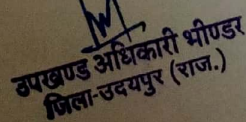 उपखण्ड अधिकारी भीण्डर
जिला-उदयपुर (राज.)